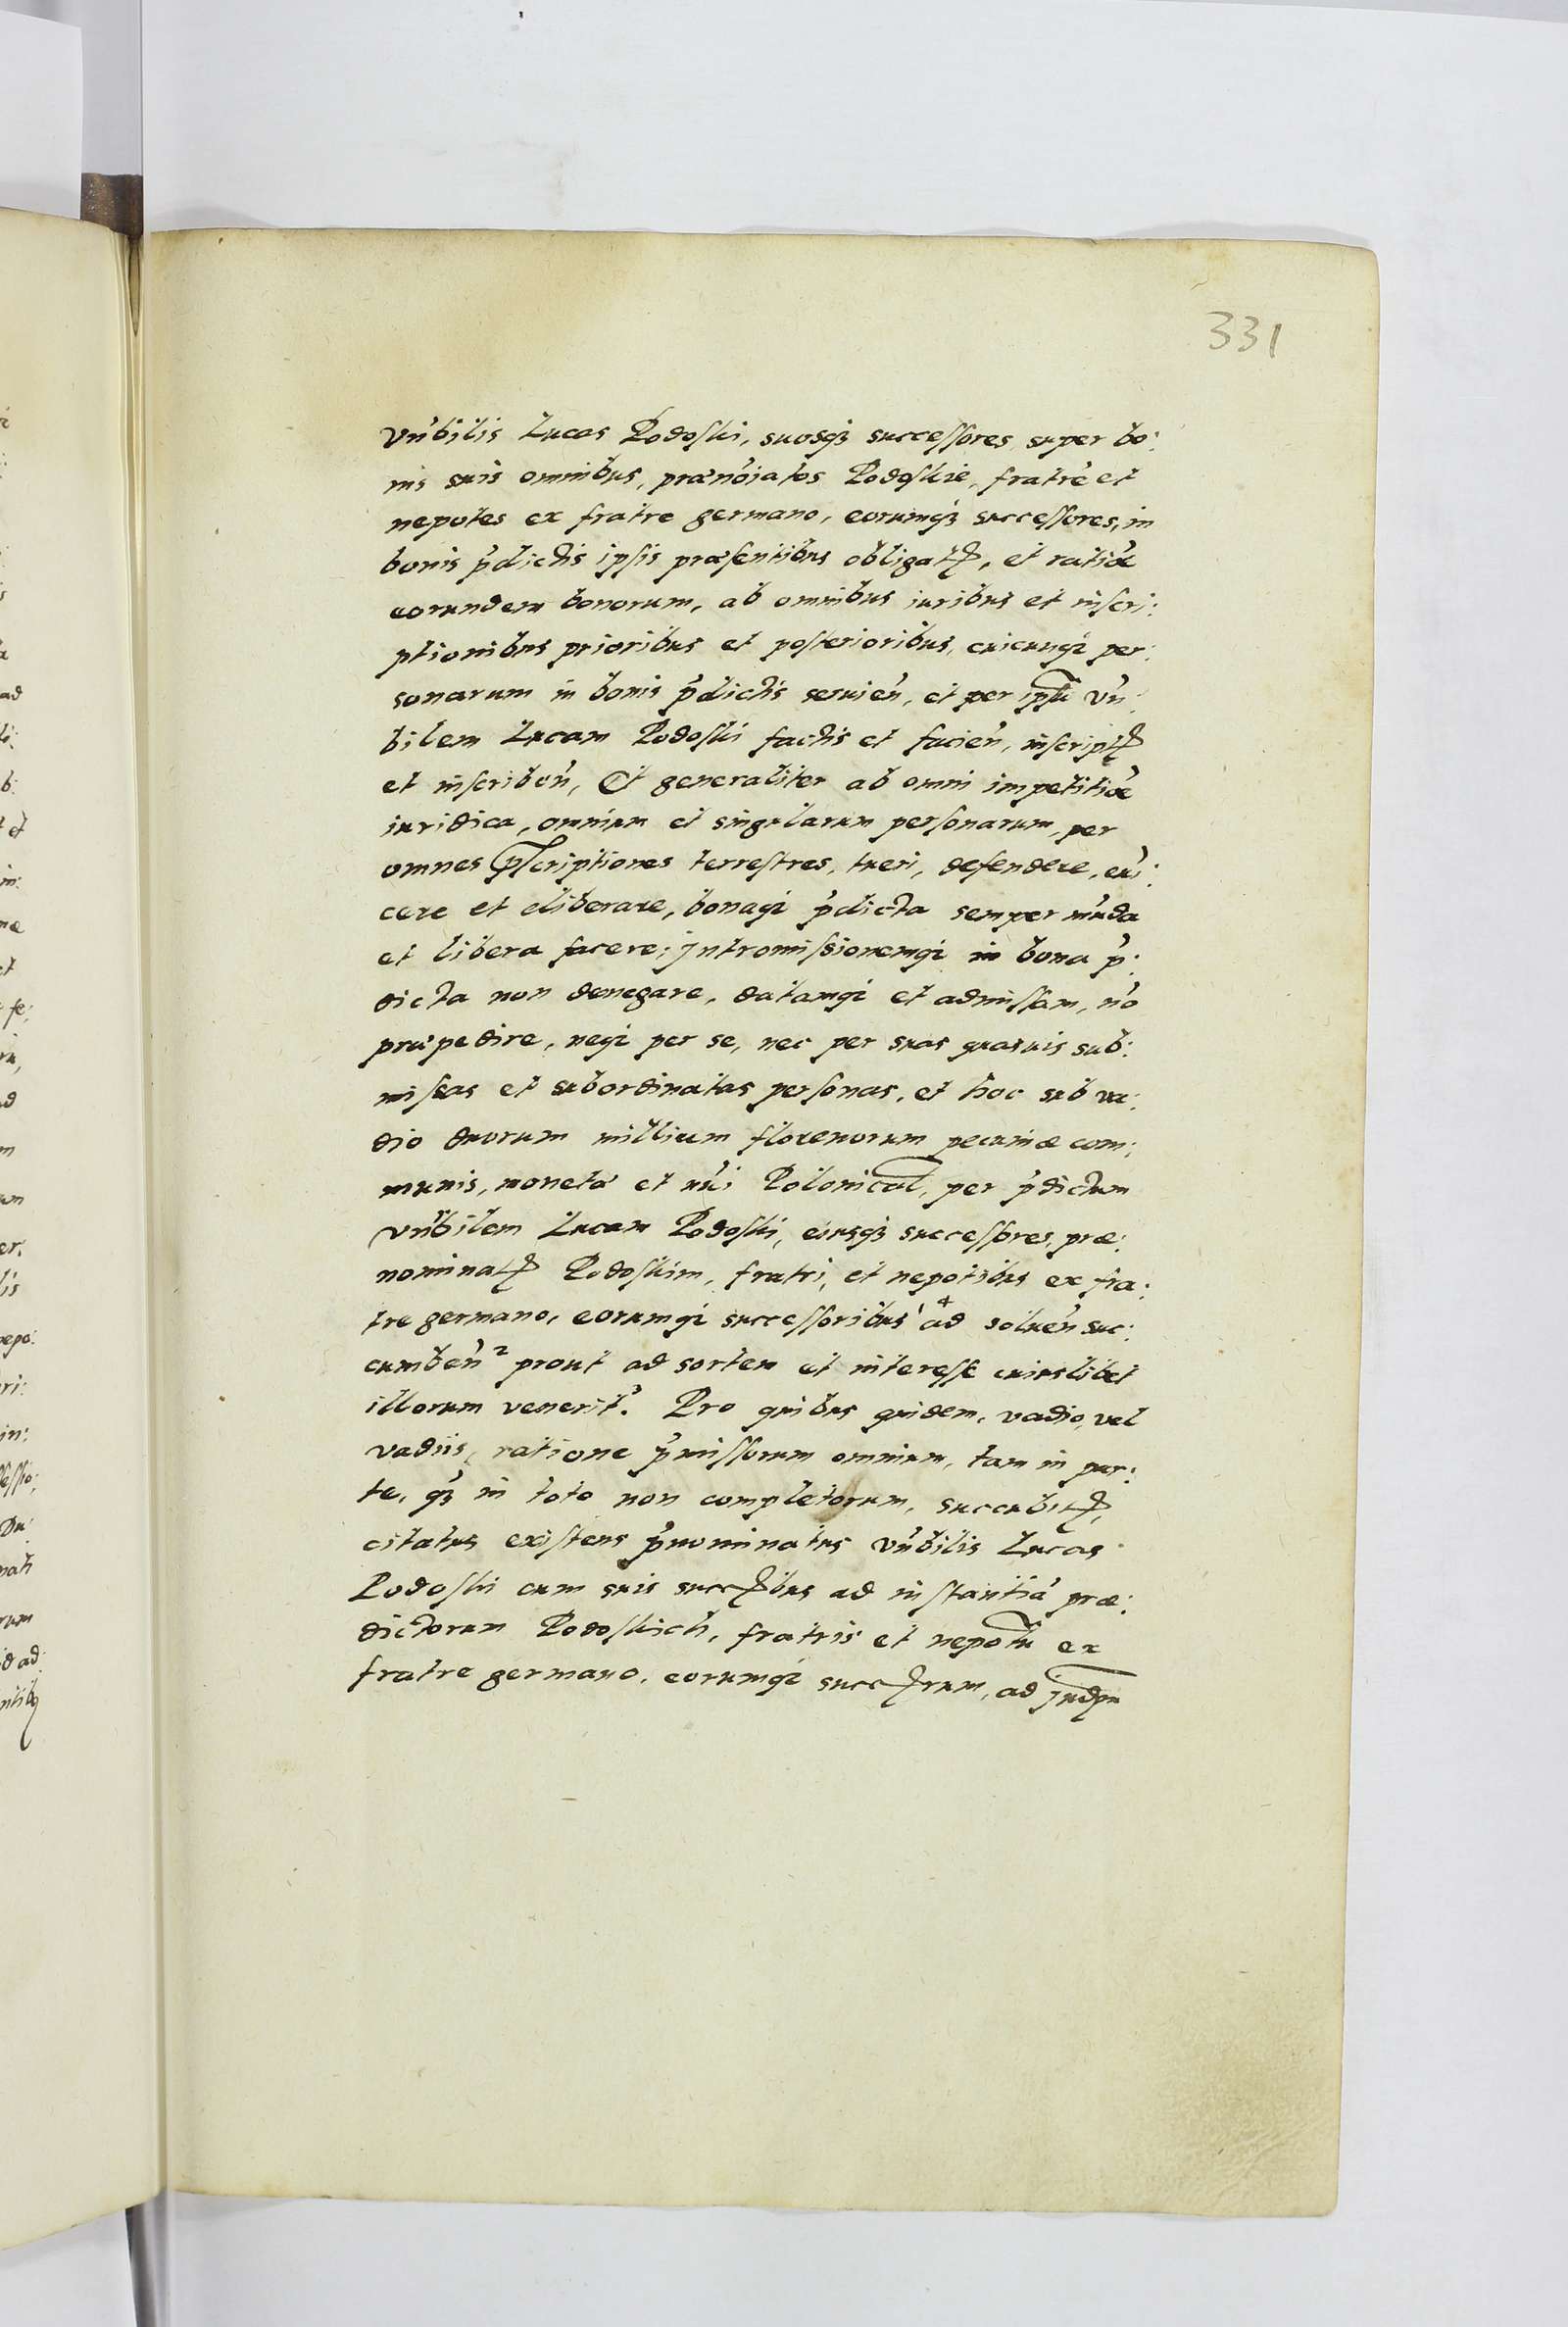 331
Vn̄bilis Lucas Podoski, suosq₃ successores super bo:
nis suis omnibus, prænōiatos Podoskie, fratrē et
nepotes ex fratre germano, eorumq₃ successores, in
bonis p̄dictis ipsis præsentibus obligatꝭ, et ratiōe
eorundem bonorum, ab omnibus iuribus et inscri:
ptionibus prioribus et posterioribus, cuicunqꝫ per:
sonarum in bonis p̄dictis seruien̄, et per ipsū Vn̄:
bilem Lucam Podoski factis et facien̄, inscriptꝭ
et inscriben̄, Et generaliter ab omni impetitiōe
iuridica, omnium et singularum personarum, per
omnes p̄scriptiones terrestres, tueri, defendere, eui:
cere et eliberare, bonaqꝫ p̄dicta semper mūda
et libera facere; Intromissionemqꝫ in bona p̄:
dicta non denegare, datamqꝫ et admissam, nō
præpedire, neqꝫ per se, nec per suas quasuis sub:
missas et subordinatas personas, et hoc sub va:
dio duorum millium florenorum pecuniæ com:
munis, monetæ et nūi Polonical, per p̄dictum
Vn̄bilem Lucam Podoski, eiusq₃ successores, præ:
nominatꝭ Podoskim, fratri, et nepotibus ex fra:
tre germano, eorumqꝫ successoribus ad soluen̄ suc:
cumben̄ prout ad sortem et interesse cuiuslibet
illorum venerit. Pro quibus quidem, vadio, vel
vadiis, ratione p̄missorum omnium, tam in par:
te, q₃ in toto non completorum, succubitꝭ,
citatus existens p̄nominatus Vn̄bilis Lucas
Podoski cum suis succꝭibus ad instantiā præ:
dictorum Podoskich, fratris et nepotū ex
fratre germano, eorumqꝫ succꝭrum, ad Judm